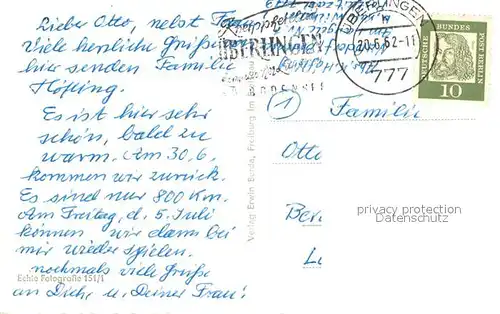 Lieber Otto, nebst Frau
Viele herzliche Grüße
hier senden Familie
Höfling.
Es ist hier sehr
schön, bald zu
warm. Am 30.6.
kommen wir zurück.
Es sind nur 800 Km.
Am Freitag, d. 5. Juli
können wir dann bei
mir wieder spielen.
nochmals viele Grüße
an Dich, u. Deiner Frau!
Echte Fotografie 151/1
Verlag Erwin Burda, Freiburg im
ÜBERLINGEN
BODENSEE
ÜBERLINGEN
20.6.62-11
777
DEUTSCHE BUNDES
POST BERLIN
10
1
Familie
Otto
Ber
privacy protection
Datenschutz